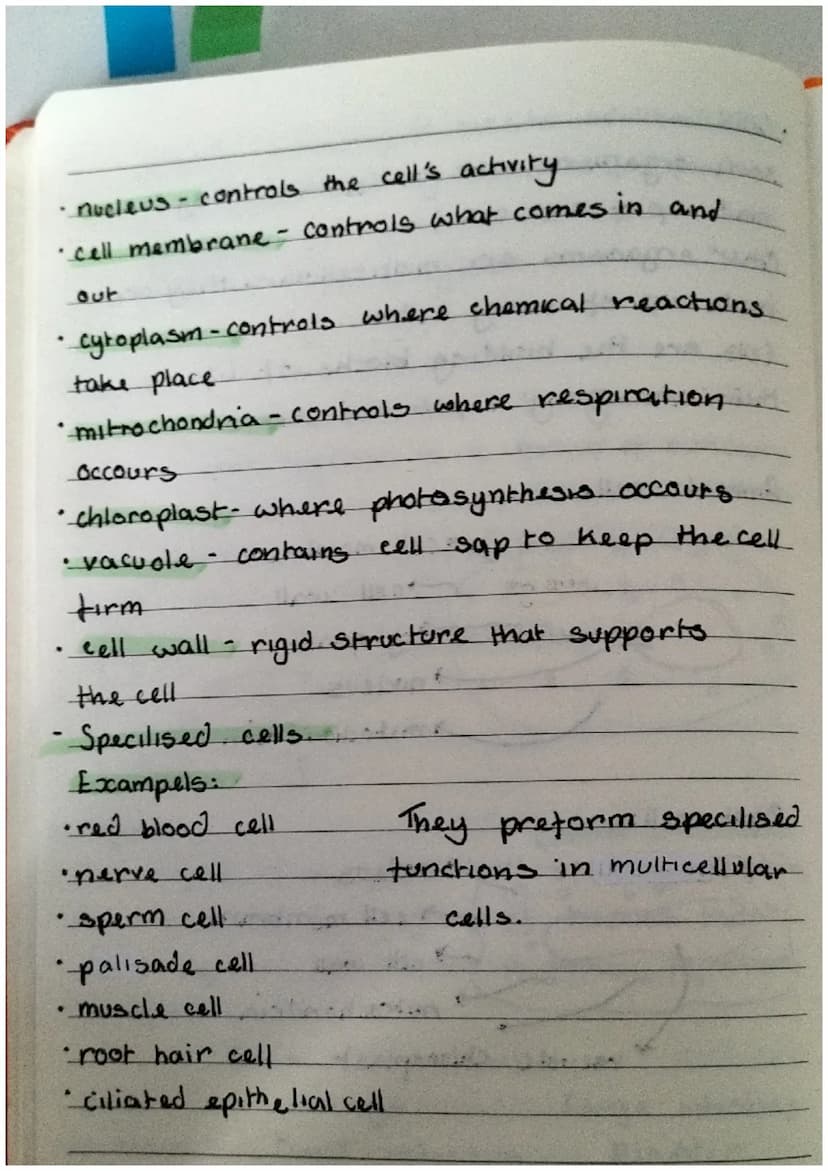 • nucleus - controls the cell's activity
• cell membrane - controls what comes in and
out
• cytoplasm - controls where chemical reactions
take place
• mitrochondria - controls where respiration
occours
• chloroplast - where photosynthesis occours
• vacuole - contains cell sap to keep the cell
firm
• cell wall - rigid structure that supports
the cell
- Specilised cells.
Exampels:
• red blood cell They preform specilised
• nerve cell functions in multicellular
• sperm cell cells.
• palisade cell
• muscle cell
• root hair cell
• ciliated epithelial cell